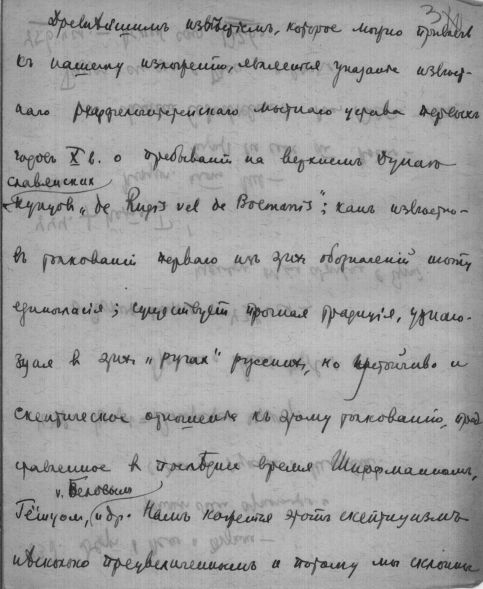 Древнѣйшимъ извѣстіемъ, которое можно привлечь
къ нашему изложенію, является указаніе извѣст-
наго Раффельштеттенскаго мытнаго устава первыхъ
годовъ X в. о пребываніи на верхнемъ Дунаѣ
славянскихъ
купцовъ „de Rugis vel de Boemanis"; какъ извѣстно
въ толкованіи перваго изъ этихъ обозначеній нѣтъ
единогласія; существуетъ прочная традиція, узнаю-
щая в этих „ругах" русских, но устойчиво и
скептическое отношеніе къ этому толкованію, пред
ставленное в послѣднее время Шиффманномъ,
и. Беловымъ
Гётцомъ, и др. Намъ кажется этотъ скептицизмъ
нѣсколько преувеличеннымъ и потому мы склонны